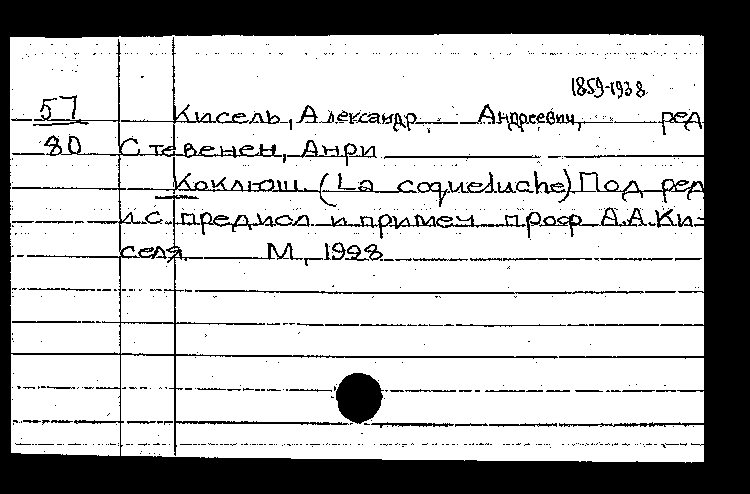 1859-1938
57 Кисель, Александр Андреевич, ред
80 Стевенен, Анри
Коклюш. (La coqueluche) Под ред
и с предисл и примеч проф А.А.Ки-
селя. М, 1928